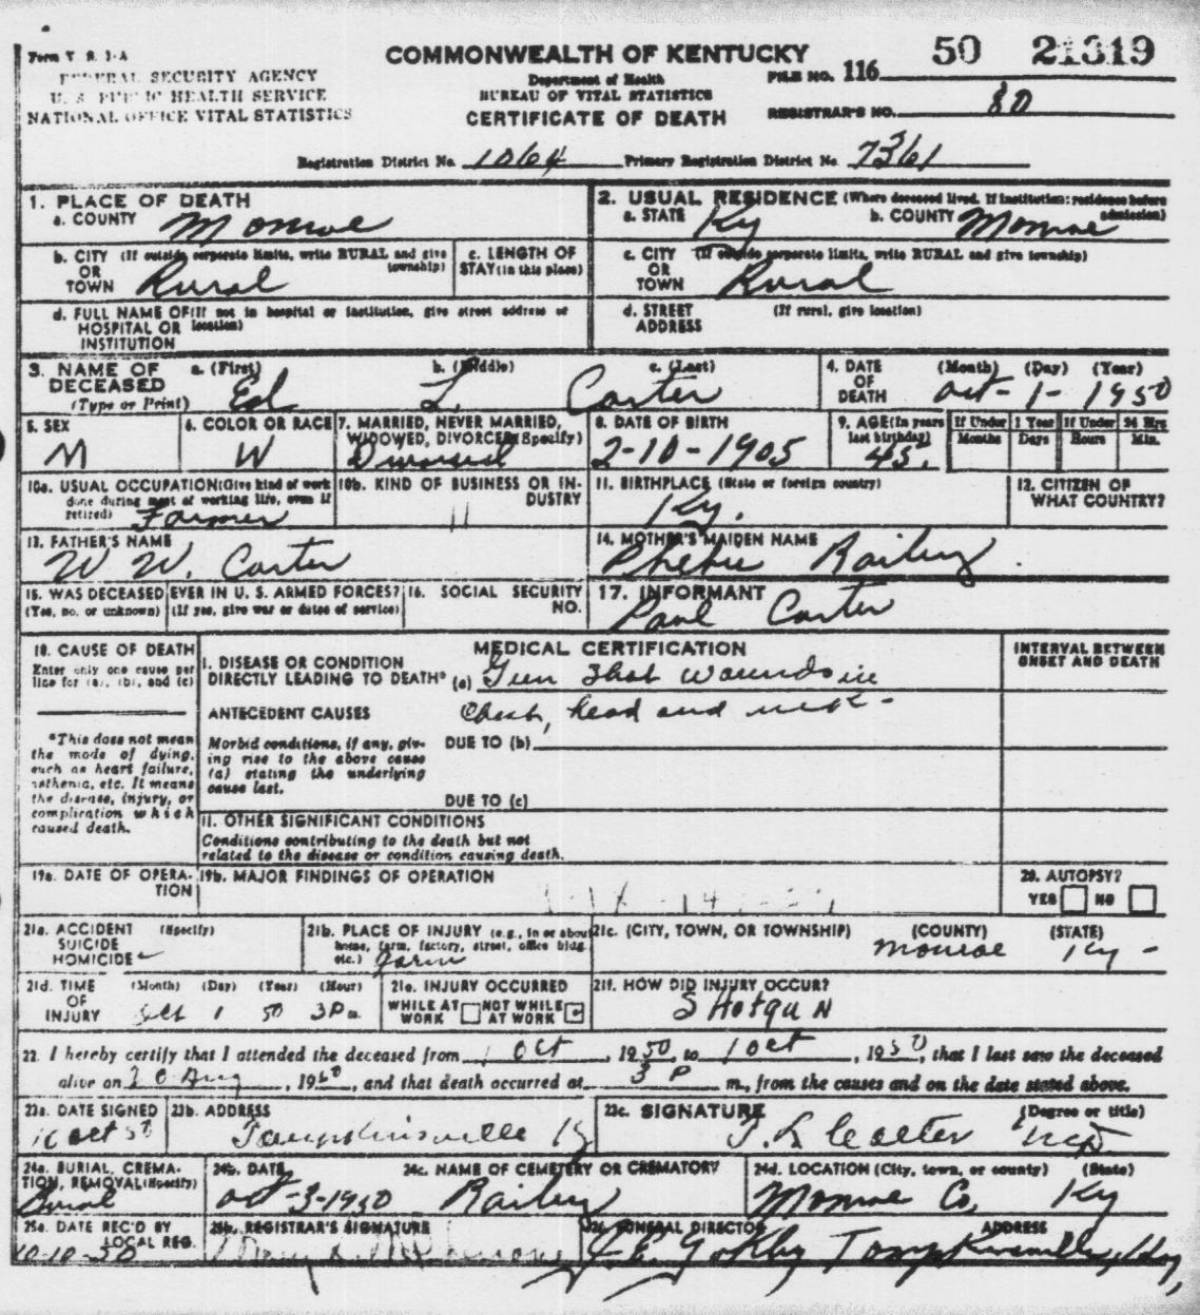 Form V. S. 1-A
FEDERAL SECURITY AGENCY
U. S. PUBLIC HEALTH SERVICE
NATIONAL OFFICE VITAL STATISTICS
COMMONWEALTH OF KENTUCKY
Department of Health
BUREAU OF VITAL STATISTICS
CERTIFICATE OF DEATH
FILE NO. 116 50 21319
REGISTRAR'S NO. 80
Registration District No. 1064 Primary Registration District No. 7361
1. PLACE OF DEATH
a. COUNTY Monroe
2. USUAL RESIDENCE (Where deceased lived. If institution: residence before admission)
a. STATE Ky b. COUNTY Monroe
b. CITY (If outside corporate limits, write RURAL and give township)
OR
TOWN Rural
c. LENGTH OF
STAY (in this place)
c. CITY (If outside corporate limits, write RURAL and give township)
OR
TOWN Rural
d. FULL NAME OF (If not in hospital or institution, give street address or location)
HOSPITAL OR
INSTITUTION
d. STREET (If rural, give location)
ADDRESS
3. NAME OF DECEASED
(Type or Print)
a. (First) b. (Middle) c. (Last)
Ed L. Carter
4. DATE OF DEATH (Month) (Day) (Year)
Oct- 1- 1950
5. SEX
M
6. COLOR OR RACE
W
7. MARRIED, NEVER MARRIED,
WIDOWED, DIVORCED (Specify)
Divorced
8. DATE OF BIRTH
2-10-1905
9. AGE (In years last birthday)
45.
If Under 1 Year If Under 24 Hrs
Months Days Hours Min.
10a. USUAL OCCUPATION (Give kind of work done during most of working life, even if retired)
Farmer
10b. KIND OF BUSINESS OR INDUSTRY
11
11. BIRTHPLACE (State or foreign country)
Ky.
12. CITIZEN OF
WHAT COUNTRY?
13. FATHER'S NAME
W W. Carter
14. MOTHER'S MAIDEN NAME
Phebie Railey
15. WAS DECEASED EVER IN U. S. ARMED FORCES?
(Yes, no. or unknown) (If yes, give war or dates of service)
16. SOCIAL SECURITY
NO.
17. INFORMANT
Paul Carter
18. CAUSE OF DEATH
Enter only one cause per
line for (a), (b), and (c)
*This does not mean
the mode of dying,
such as heart failure,
asthenia, etc. It means
the disease, injury, or
complication which
caused death.
MEDICAL CERTIFICATION
INTERVAL BETWEEN
ONSET AND DEATH
I. DISEASE OR CONDITION
DIRECTLY LEADING TO DEATH* (a) Gun Shot wounds in
ANTECEDENT CAUSES Chest, head and neck -
Morbid conditions, if any, giving rise to the above cause
(a) stating the underlying
cause last.
DUE TO (b)
DUE TO (c)
II. OTHER SIGNIFICANT CONDITIONS
Conditions contributing to the death but not
related to the disease or condition causing death.
19a. DATE OF OPERATION
19b. MAJOR FINDINGS OF OPERATION
20. AUTOPSY?
YES NO
21a. ACCIDENT (Specify)
SUICIDE
HOMICIDE
21b. PLACE OF INJURY (e.g., in or about
home, farm, factory, street, office bldg.
etc.) farm
21c. (CITY, TOWN, OR TOWNSHIP) (COUNTY) (STATE)
Monroe Ky -
21d. TIME OF INJURY (Month) (Day) (Year) (Hour)
Oct 1 50 3Pm.
21e. INJURY OCCURRED
WHILE AT WORK NOT WHILE AT WORK
21f. HOW DID INJURY OCCUR?
SHotguN
22. I hereby certify that I attended the deceased from 1 Oct, 1950, to 1 Oct, 1950, that I last saw the deceased
alive on 20 Aug, 1950, and that death occurred at 3 P m., from the causes and on the date stated above.
23a. DATE SIGNED
10 Oct 50
23b. ADDRESS
Tompkinsville Ky
23c. SIGNATURE (Degree or title)
MD.
24a. BURIAL, CREMATION, REMOVAL (Specify)
Burial
24b. DATE
Oct-3-1950
24c. NAME OF CEMETERY OR CREMATORY
Railey
24d. LOCATION (City, town, or county) (State)
Monroe Co, Ky
25a. DATE REC'D BY
LOCAL REG.
10-10-50
25b. REGISTRAR'S SIGNATURE
26. FUNERAL DIRECTOR ADDRESS
Tompkinsville, Ky,